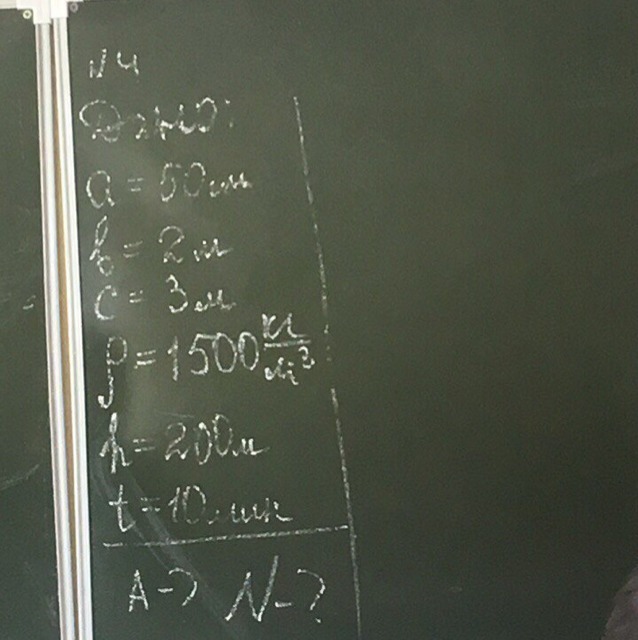 №4
Дано:
a = 50 см
b = 2 м
c = 3 м
ρ = 1500 кг/м³
h = 200 м
t = 10 мин
A - ? N - ?